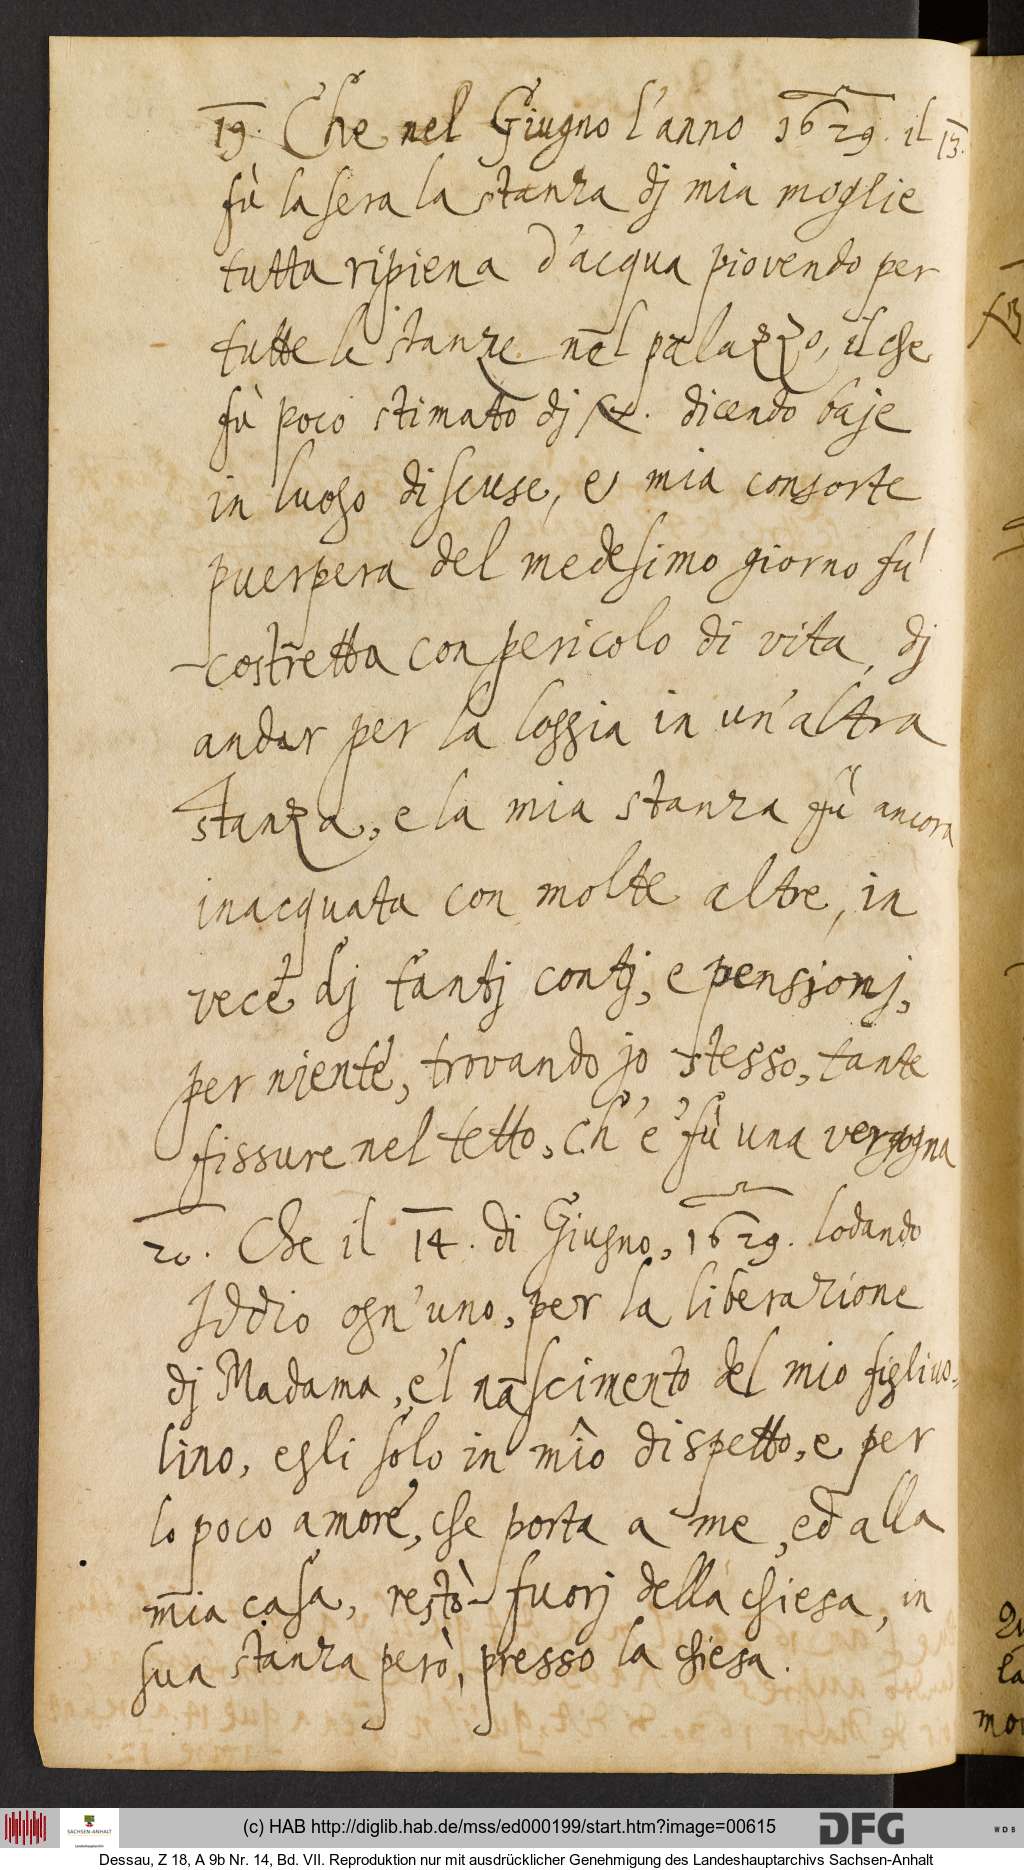 19. Che nel Giugno l'anno 1629. il 13.
fù la sera la stanza dj mia moglie
tutta ripiena d'acqua piovendo per
tutte le stanze nel palazzo, il che
fù poco stimato dj dicendo baje
in luogo di scuse, e mia consorte
puerpera del medesimo giorno fù
costretta con pericolo di vita, dj
andar per la loggia in un'altra
stanza, e la mia stanza fù ancora
inacquata con molte altre, in
vece dj tantj contj, e pensionj,
per niente, trovando jo stesso, tante
fissure nel tetto, ch'è fù una vergogna
20. Che il 14. di Giugno, 1629. lodando
Iddio ogn'uno, per la liberazione
dj Madama, e'l nascimento del mio figliuo-
lino, egli solo in mio dispetto, e per
lo poco amore, che porta a me, ed alla
mia casa, restò fuorj della chiesa, in
sua stanza però, presso la chiesa.
la
(c) HAB http://diglib.hab.de/mss/ed000199/start.htm?image=00615
SACHSEN-ANHALT
DFG
WDB
Dessau, Z 18, A 9b Nr. 14, Bd. VII. Reproduktion nur mit ausdrücklicher Genehmigung des Landeshauptarchivs Sachsen-Anhalt